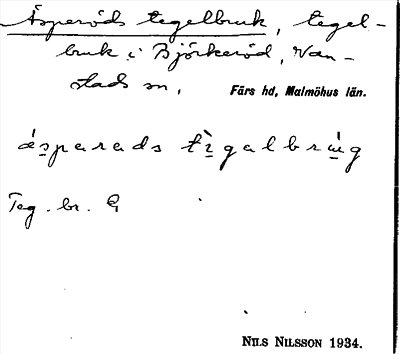 Äsperöds tegelbruk, tegel-
bruk i Björkeröd, Van-
stads sn,
Färs hd, Malmöhus län.
ásparads tìgalbrùg
Teg. br. G
NILS NILSSON 1934.